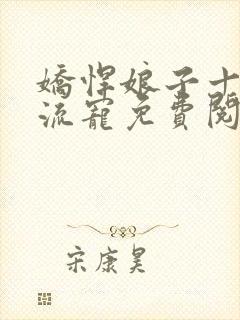 嬌悍娘子十
流寵免費閱
宋康昊